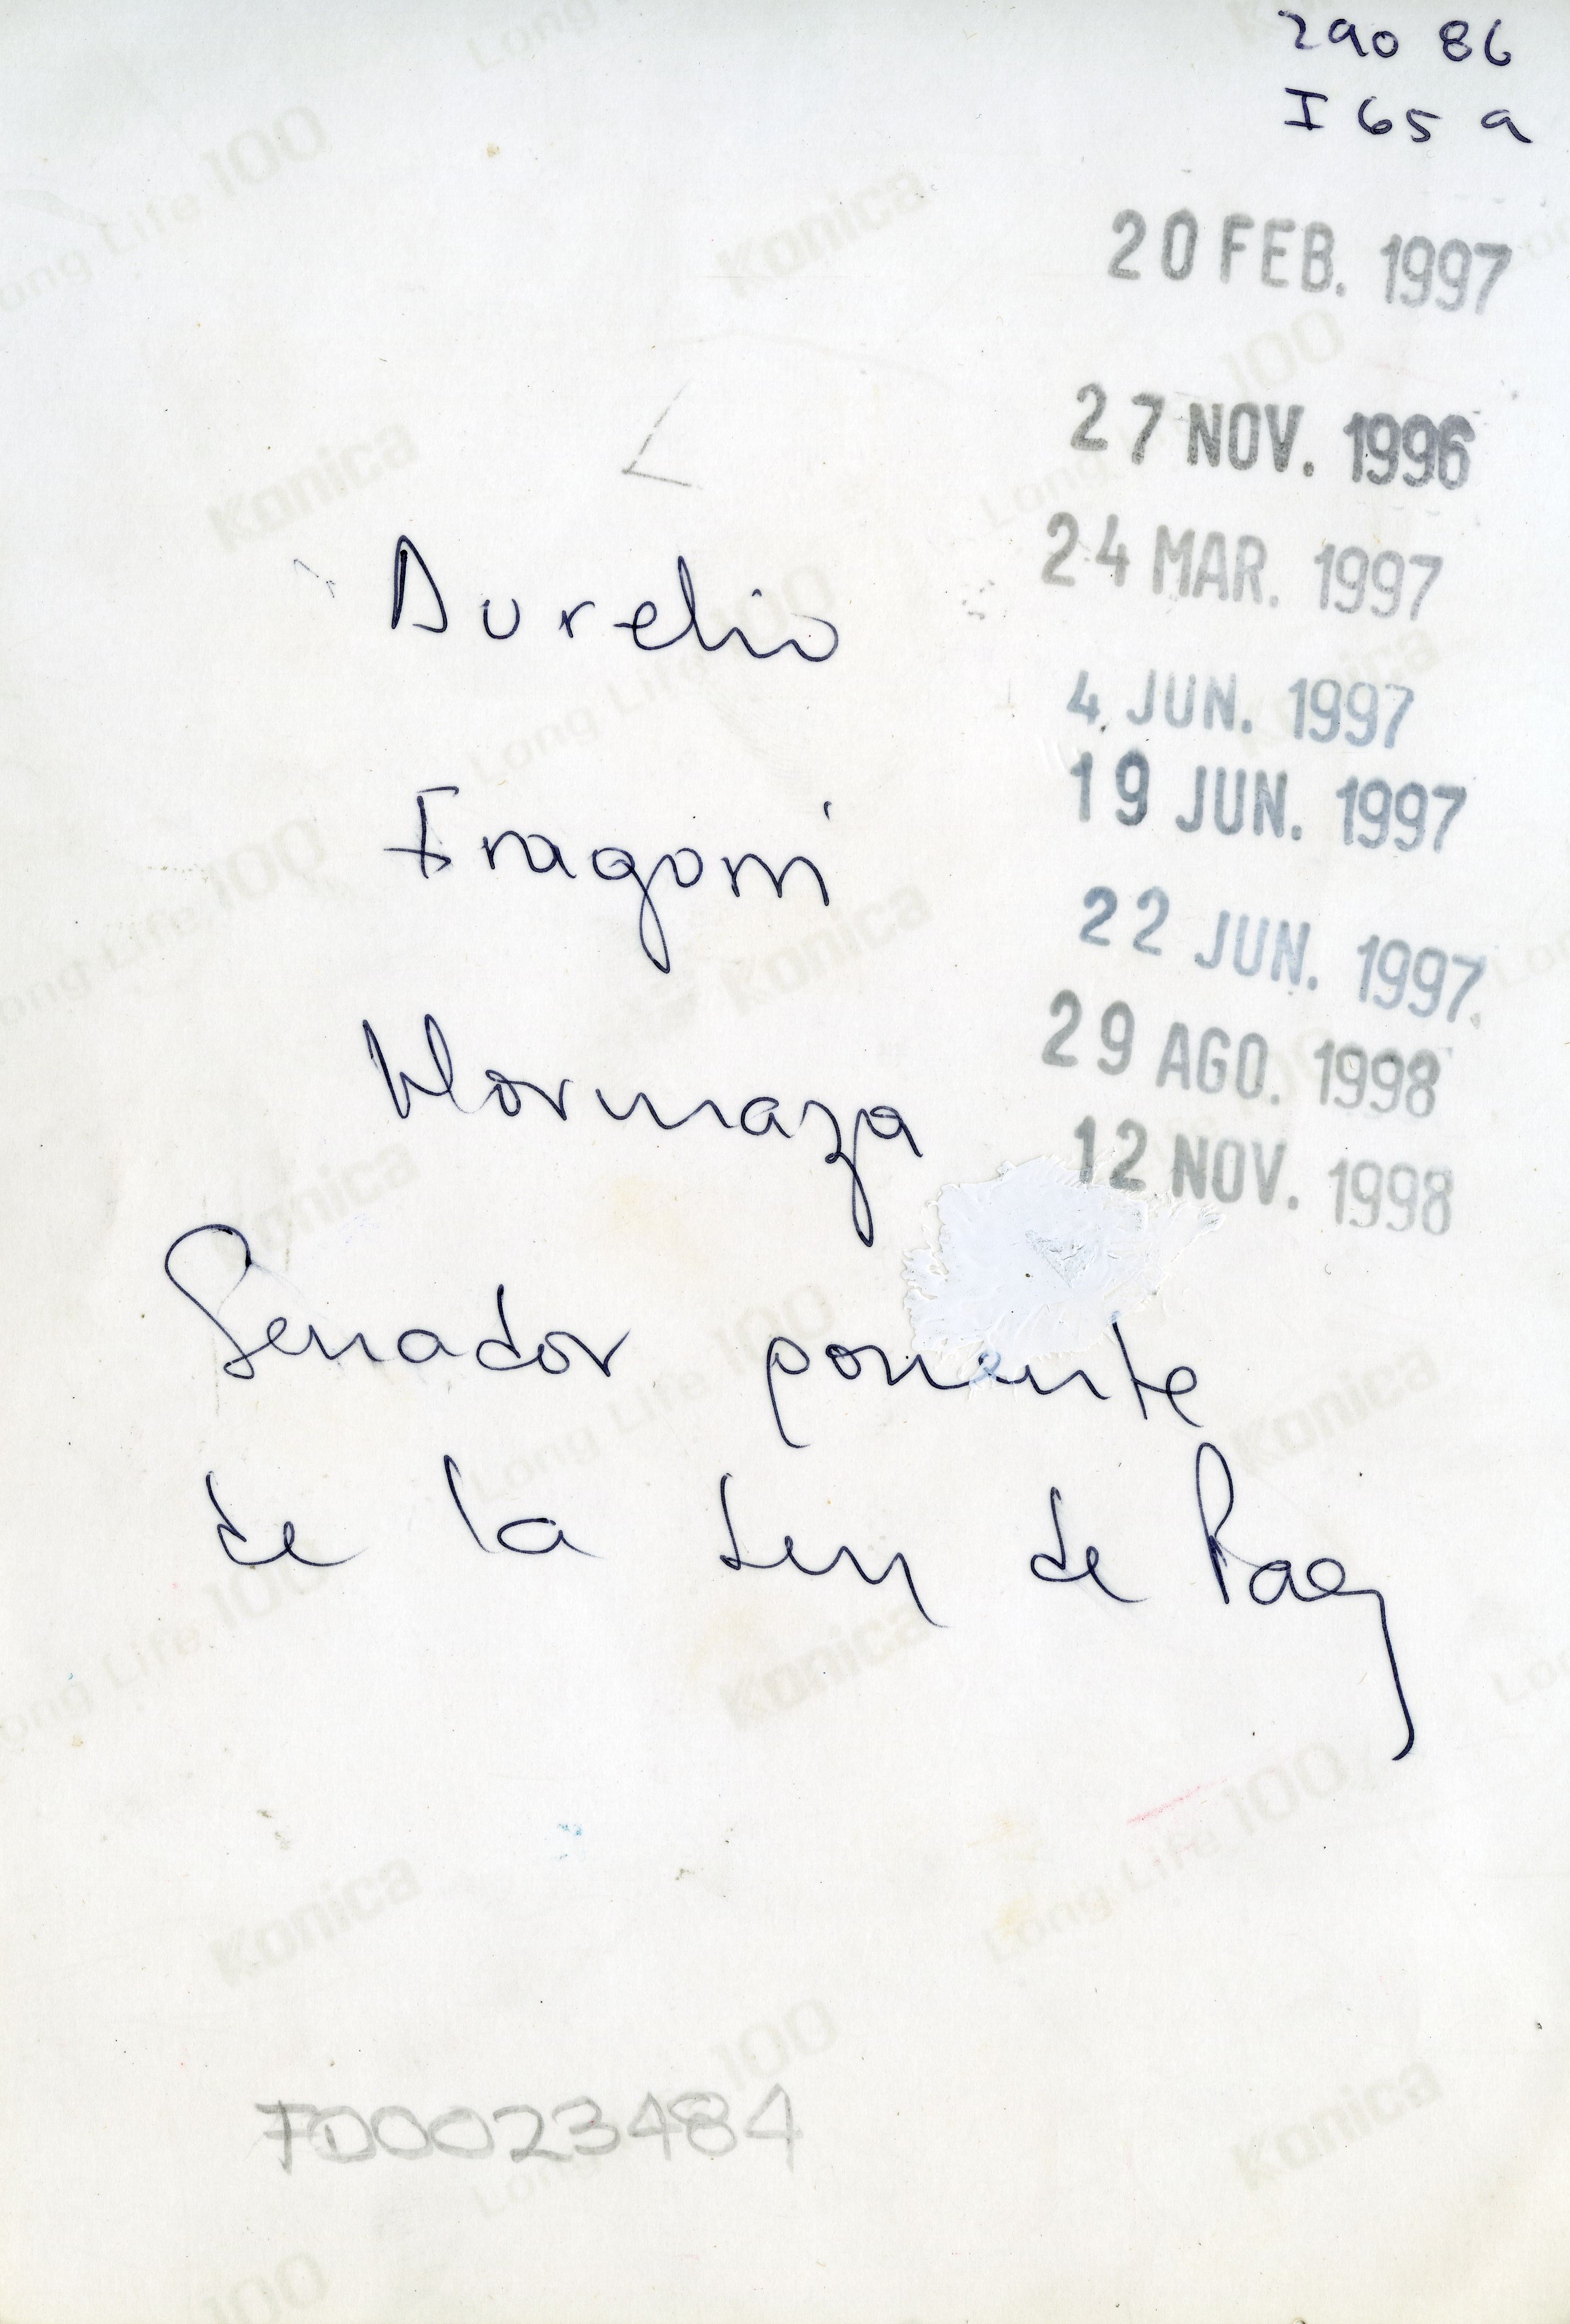 290 86
I 65 a
20 FEB. 1997
27 NOV. 1996
24 MAR. 1997
Aurelio
4 JUN. 1997
19 JUN. 1997
Iragorri
22 JUN. 1997
29 AGO. 1998
Hormaza
12 NOV. 1998
Senador ponente
de la Ley de Paez
FD0023484
Konica
Long Life 100